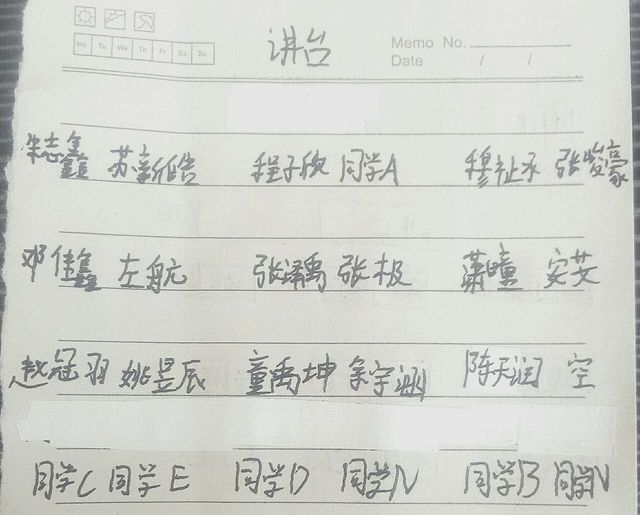 Mo Tu We Tn Fr Sa Su
讲台
Memo No.
Date / /
朱志鑫 苏新皓 程子欣 同学A 穆祉丞 张峻豪
邓佳鑫 左航 张泽禹 张极 萧瞳 安艾
赵冠羽 姚昱辰 童禹坤 余宇涵 陈天润 空
同学C 同学E 同学D 同学N 同学B 同学N